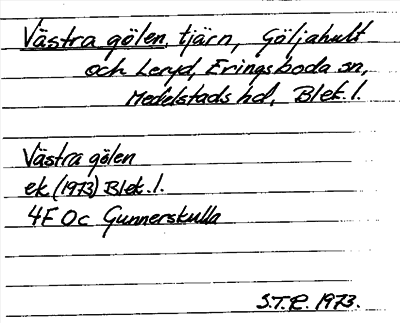 Västra gölen, tjärn, Göljahult
och Leryd, Eringsboda sn,
Medelstads hd, Blek. l.
Västra gölen
ek. (1973) Blek. l.
4F 0c Gunnerskulla
S.T.R. 1973.